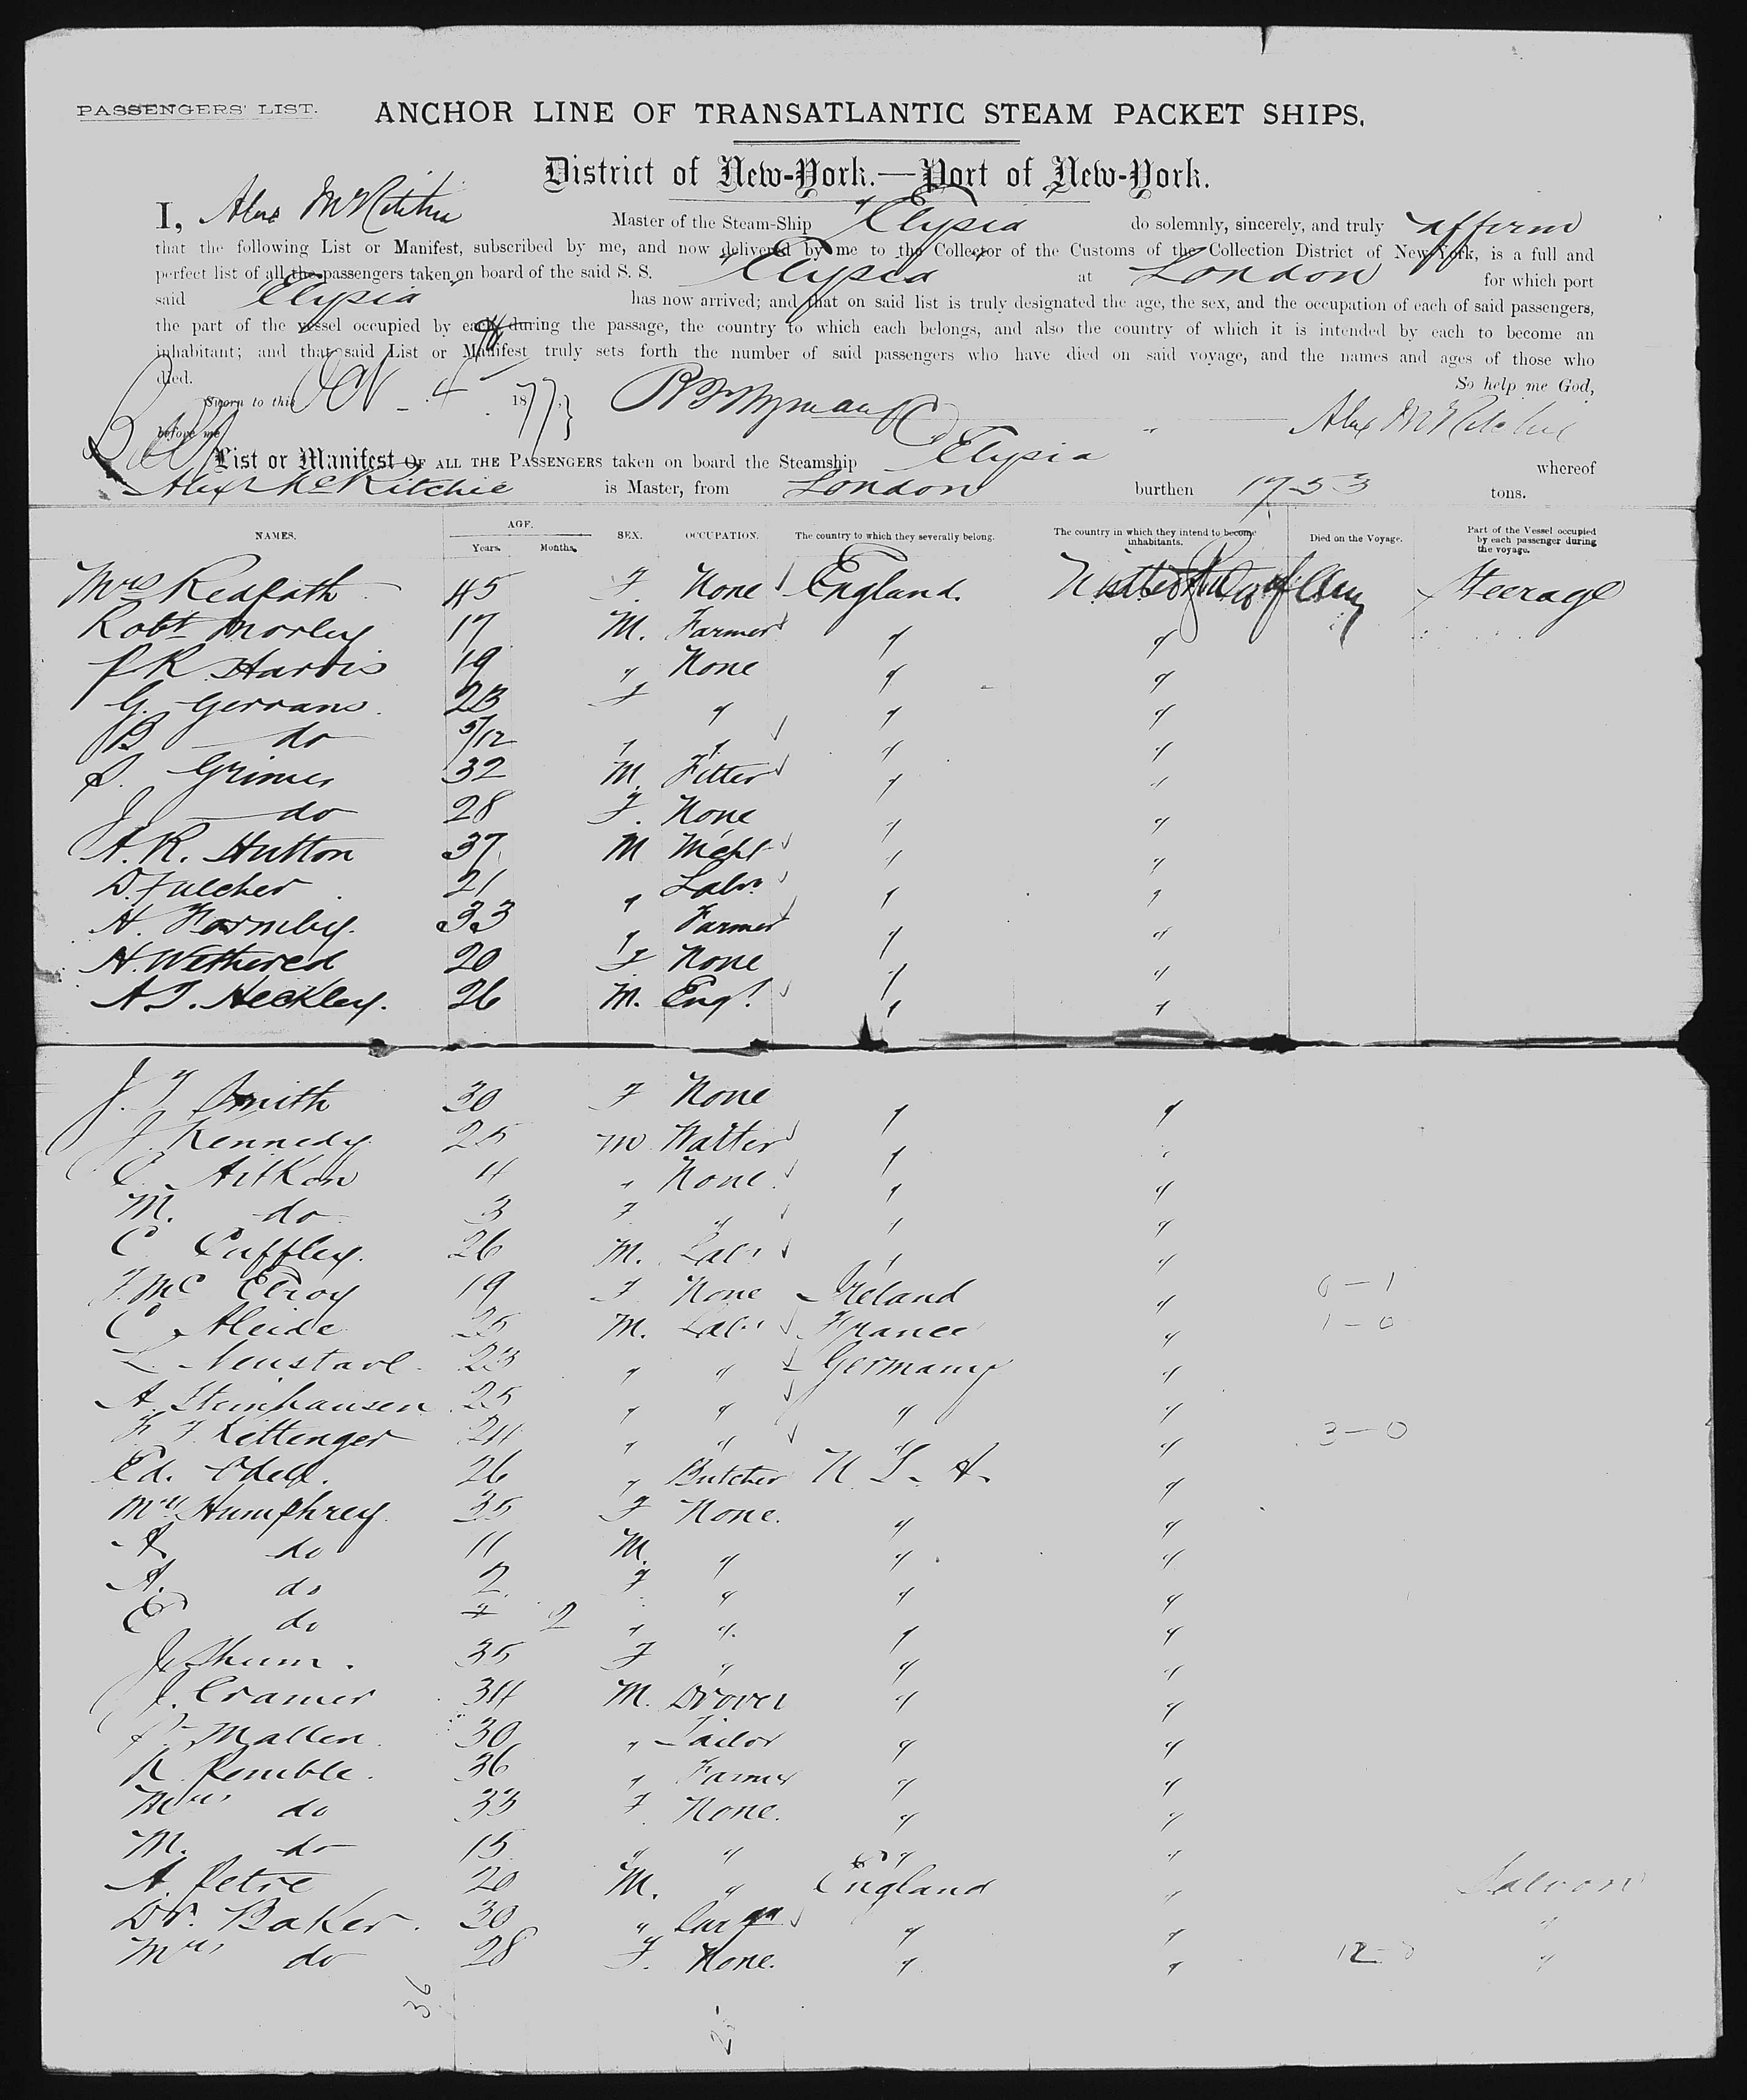 PASSENGERS' LIST. ANCHOR LINE OF TRANSATLANTIC STEAM PACKET SHIPS.
District of New-York.—Port of New-York.
I, Alex McRitchie Master of the Steam-Ship "Elysia" do solemnly, sincerely, and truly affirm
that the following List or Manifest, subscribed by me, and now delivered by me to the Collector of the Customs of the Collection District of New York, is a full and
perfect list of all the passengers taken on board of the said S. S. Elysia at London for which port
said "Elysia" has now arrived; and that on said list is truly designated the age, the sex, and the occupation of each of said passengers,
the part of the vessel occupied by each during the passage, the country to which each belongs, and also the country of which it is intended by each to become an
inhabitant; and that said List or Manifest truly sets forth the number of said passengers who have died on said voyage, and the names and ages of those who
died. So help me God,
Sworn to this Oct 4 1877
before me Alex McRitchie
List or Manifest OF ALL THE PASSENGERS taken on board the Steamship "Elysia" whereof
Alex McRitchie is Master, from London burthen 1733 tons.
NAMES. AGE. Years. Months. SEX. OCCUPATION. The country to which they severally belong. The country in which they intend to become inhabitants. Died on the Voyage. Part of the Vessel occupied by each passenger during the voyage.
Mrs Redpath 45 F. None England. United States of Amer Steerage
Robt Morley 17 M. Farmer " "
P R Harris 19 " None " "
G. Gerrans 23 F " " "
B do 5/12 " " " "
S. Grimes 32 M. Fitter " "
J do 28 F. None " "
A. R. Hutton 37 M Mcht " "
D. Fulcher 21 " Labr " "
H. Formby. 33 " Farmer " "
H. Wethered 20 F None " "
A. J. Heckley. 26 M. Engr " "
J. T Smith 30 F None " "
J. Kennedy 25 M Waiter " "
C. Aitken 4 " None " "
M. do 3 F " " "
C Cuffley. 26 M. Labr " "
F. Mc Elroy 19 F None Ireland " 0-1
C Aleide 25 M. Labr France " 1-0
L. 23 " " Germany "
A. Steinhausen 25 " " " "
F. F. Kittenger 24 " " " " 3-0
Ed. Odell. 26 " Butcher U. S. A. "
Mrs Humphrey. 35 F None. " "
A do 11 M. " " "
A. do 2 F " " "
E do 2 " " " "
J. Shum. 35 F " " "
J. Cramer 34 M. Drover " "
P. Mallen 30 " Tailor " "
R Pemble. 36 " Farmer " "
Mrs do 33 F None. " "
M. do 15 " " " "
A. Petre 20 M. " England " Saloon
Dr. Baker. 30 " Surgn " " "
Mrs do 28 F. None. " " 12-0 "
36
25